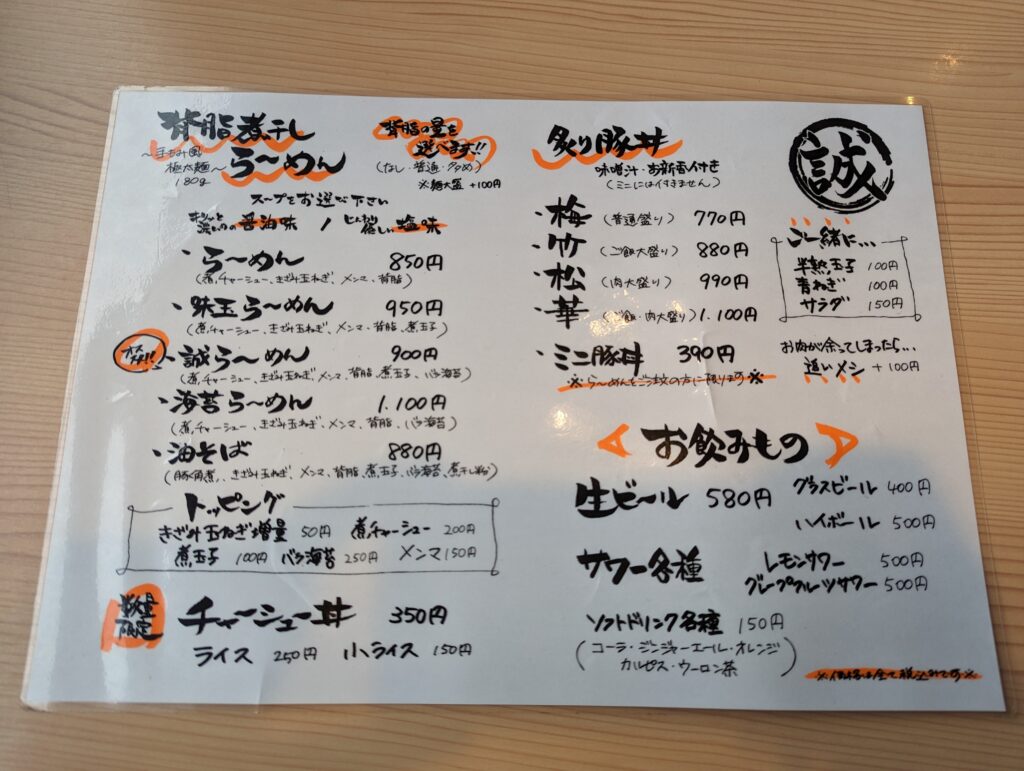 背脂煮干し
らーめん
〜手もみ風
極太麺〜
180g
背脂の量を
選べます!!
(なし・普通・多め)
※麺大盛 +100円
スープをお選び下さい
醤油味 / じんわり優しい塩味
・らーめん 850円
(煮チャーシュー、きざみ玉ねぎ、メンマ、背脂)
・味玉らーめん 950円
(煮チャーシュー、きざみ玉ねぎ、メンマ、背脂、煮玉子)
オススメ!!
・誠らーめん 900円
(煮チャーシュー、きざみ玉ねぎ、メンマ、背脂、煮玉子、バラ海苔)
・海苔らーめん 1.100円
(煮チャーシュー、きざみ玉ねぎ、メンマ、背脂、バラ海苔)
・油そば 880円
(豚角煮、きざみ玉ねぎ、メンマ、背脂、煮玉子、バラ海苔、煮干し粉)
トッピング
きざみ玉ねぎ増量 50円 煮チャーシュー 200円
煮玉子 100円 バラ海苔 250円 メンマ 150円
数量
限定
チャーシュー丼 350円
ライス 250円 小ライス 150円
炙り豚丼
味噌汁・お新香付き
(ミニには付きません)
・梅 (普通盛り) 770円
・竹 (ご飯大盛り) 880円
・松 (肉大盛り) 990円
・華 (ご飯・肉大盛り) 1.100円
・ミニ豚丼 390円
※らーめんをご注文の方に限ります※
誠
ご一緒に...
半熟玉子 100円
青ねぎ 100円
サラダ 150円
お肉が余ってしまったら...
追いメシ +100円
お飲みもの
生ビール 580円
グラスビール 400円
ハイボール 500円
サワー各種
レモンサワー 500円
グレープフルーツサワー 500円
ソフトドリンク各種 150円
(コーラ・ジンジャーエール・オレンジ
カルピス・ウーロン茶)
※価格は全て税込みです※